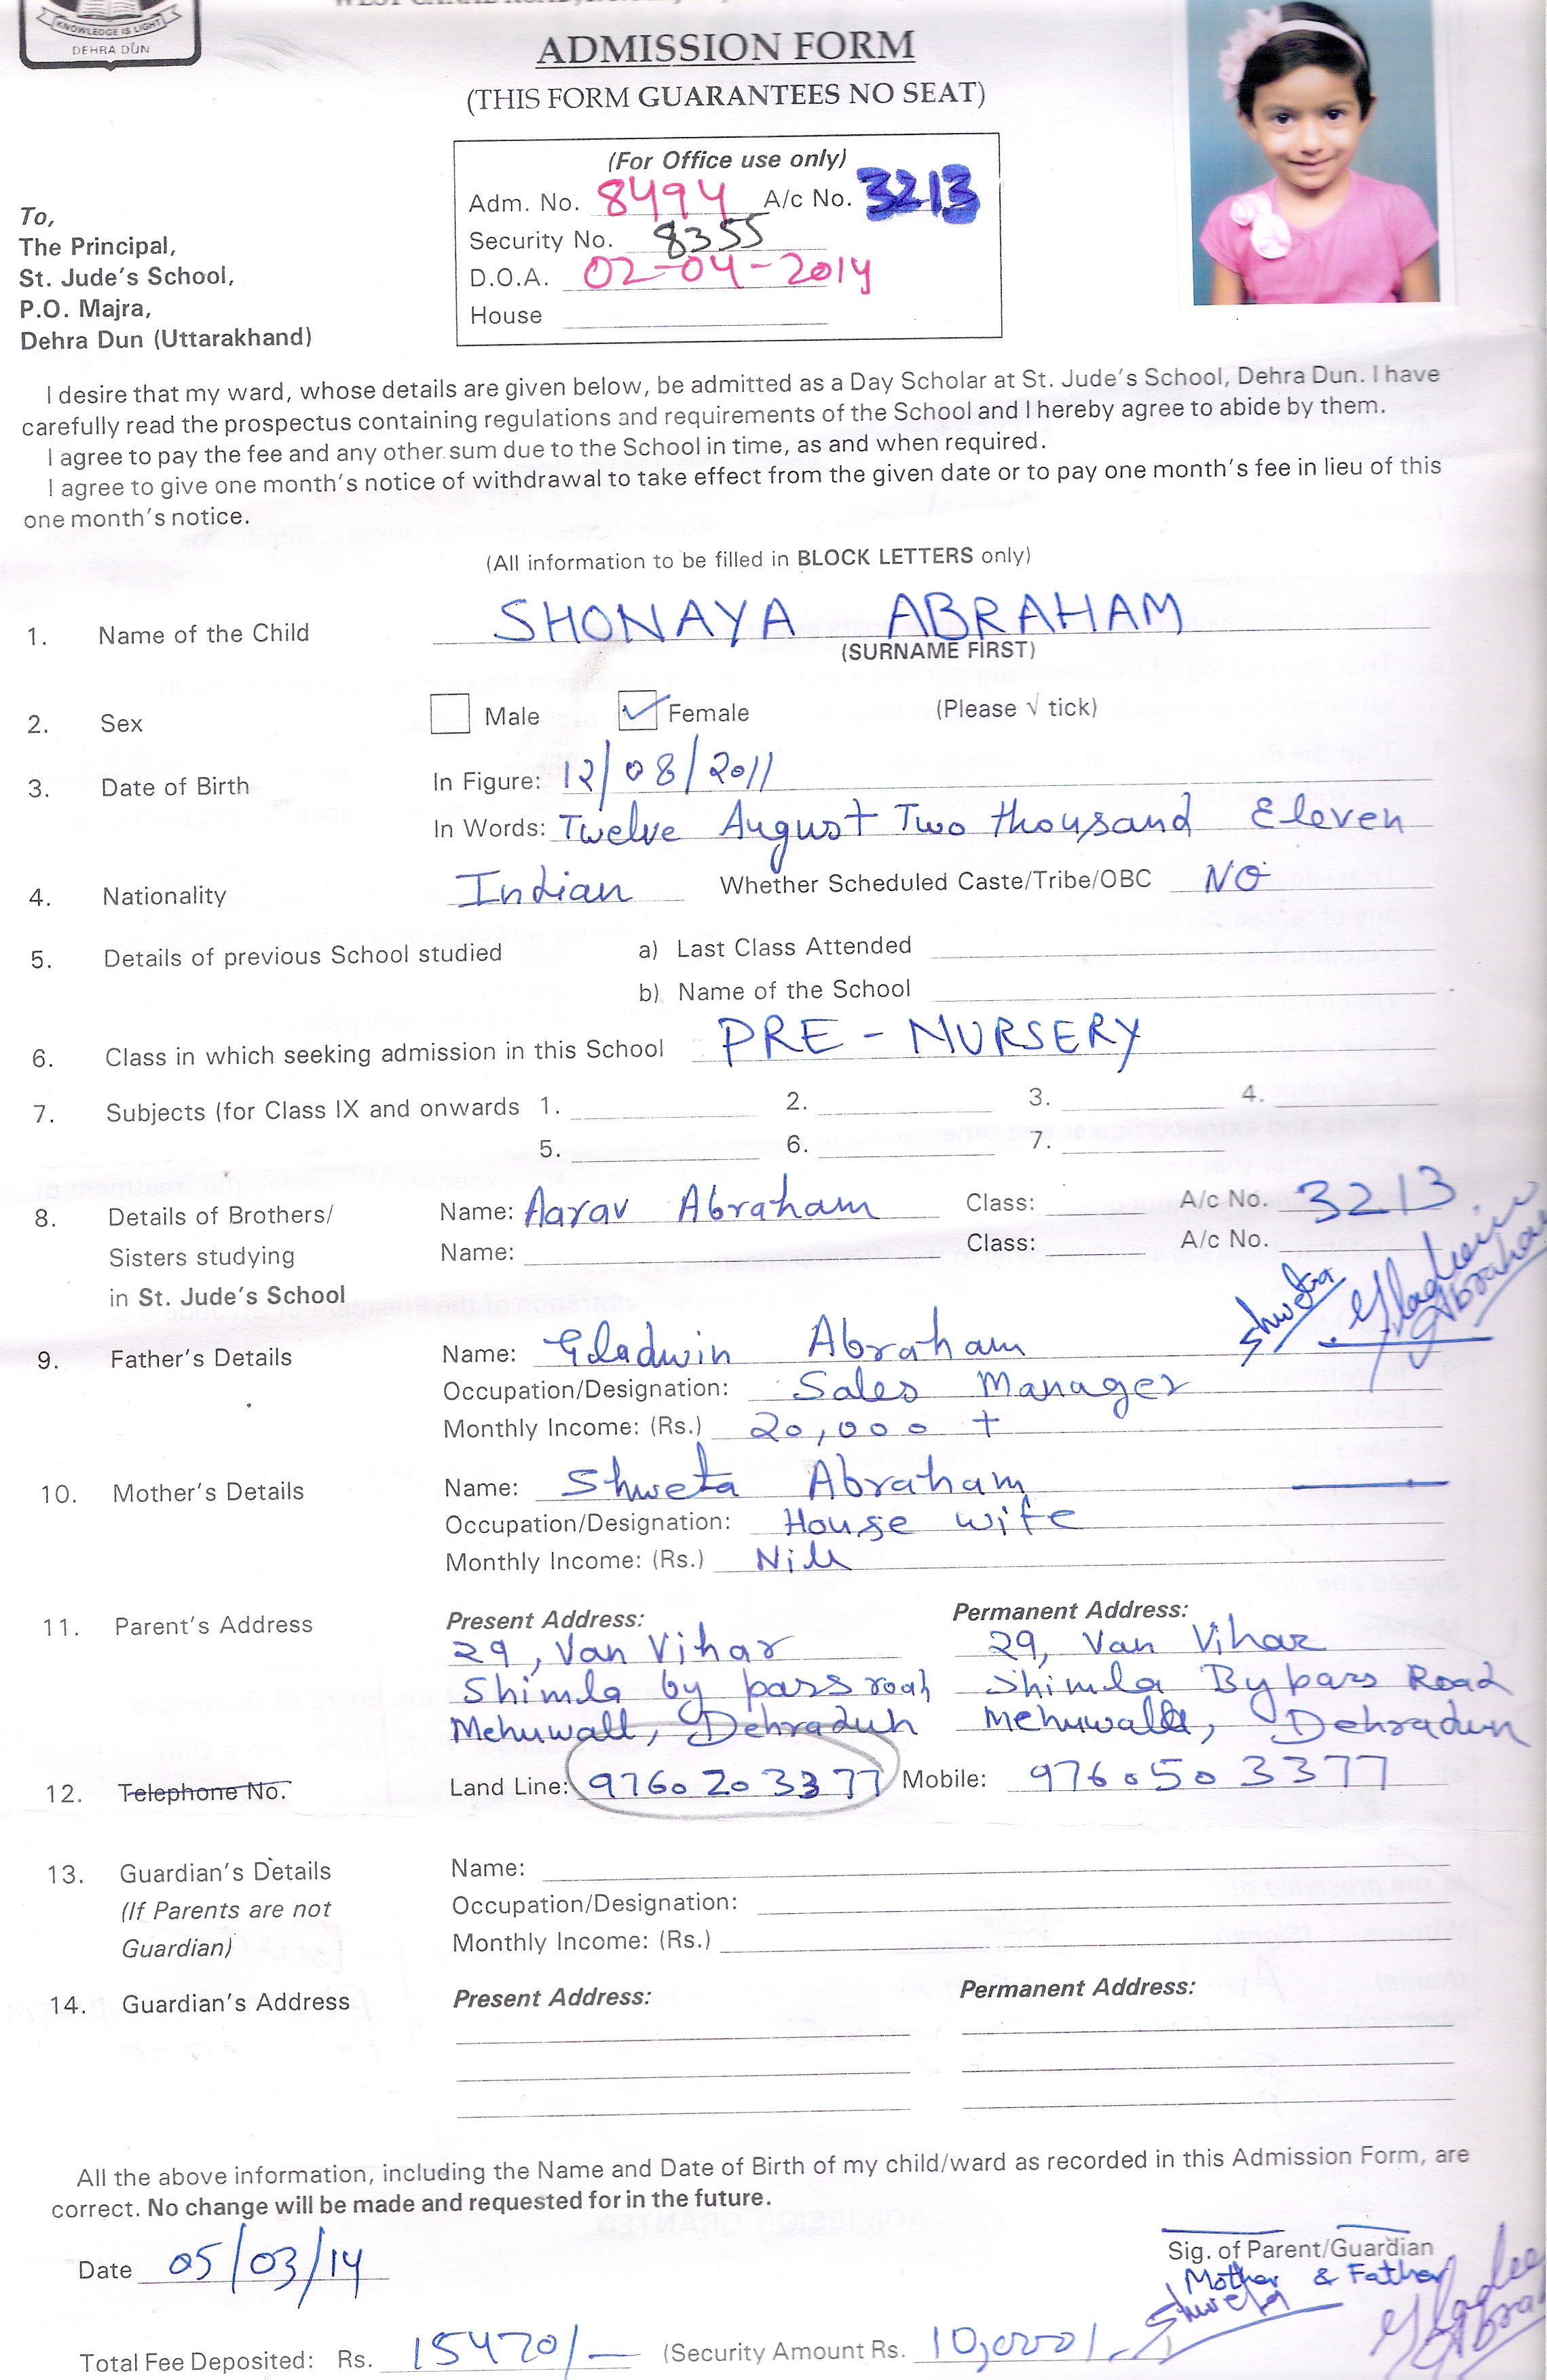 KNOWLEDGE IS LIGHT
DEHRA DUN
ADMISSION FORM
(THIS FORM GUARANTEES NO SEAT)
(For Office use only)
Adm. No. 8494 A/c No. 3213
Security No. 8355
D.O.A. 02-04-2014
House
To,
The Principal,
St. Jude's School,
P.O. Majra,
Dehra Dun (Uttarakhand)
I desire that my ward, whose details are given below, be admitted as a Day Scholar at St. Jude's School, Dehra Dun. I have
carefully read the prospectus containing regulations and requirements of the School and I hereby agree to abide by them.
I agree to pay the fee and any other sum due to the School in time, as and when required.
I agree to give one month's notice of withdrawal to take effect from the given date or to pay one month's fee in lieu of this
one month's notice.
(All information to be filled in BLOCK LETTERS only)
1. Name of the Child SHONAYA ABRAHAM
(SURNAME FIRST)
2. Sex Male ✓ Female (Please √ tick)
3. Date of Birth In Figure: 12/08/2011
In Words: Twelve August Two thousand Eleven
4. Nationality Indian Whether Scheduled Caste/Tribe/OBC NO
5. Details of previous School studied a) Last Class Attended
b) Name of the School
6. Class in which seeking admission in this School PRE - NURSERY
7. Subjects (for Class IX and onwards 1. 2. 3. 4.
5. 6. 7.
8. Details of Brothers/ Name: Aarav Abraham Class: A/c No. 3213
Sisters studying Name: Class: A/c No.
in St. Jude's School
Shweta Gladwin Abraham
9. Father's Details Name: Gladwin Abraham
Occupation/Designation: Sales Manager
Monthly Income: (Rs.) 20,000 +
10. Mother's Details Name: Shweta Abraham
Occupation/Designation: House wife
Monthly Income: (Rs.) Nill
11. Parent's Address Present Address: Permanent Address:
29, Van Vihar 29, Van Vihar
Shimla by pass road Shimla Bypass Road
Mehuwall, Dehradun Mehuwalla, Dehradun
12. Telephone No. Land Line: 9760203377 Mobile: 9760503377
13. Guardian's Details Name:
(If Parents are not Occupation/Designation:
Guardian) Monthly Income: (Rs.)
14. Guardian's Address Present Address: Permanent Address:
All the above information, including the Name and Date of Birth of my child/ward as recorded in this Admission Form, are
correct. No change will be made and requested for in the future.
Date 05/03/14
Sig. of Parent/Guardian
Mother & Father
Shweta Gladwin Abraham
Total Fee Deposited: Rs. 15470/- (Security Amount Rs. 10,000/-